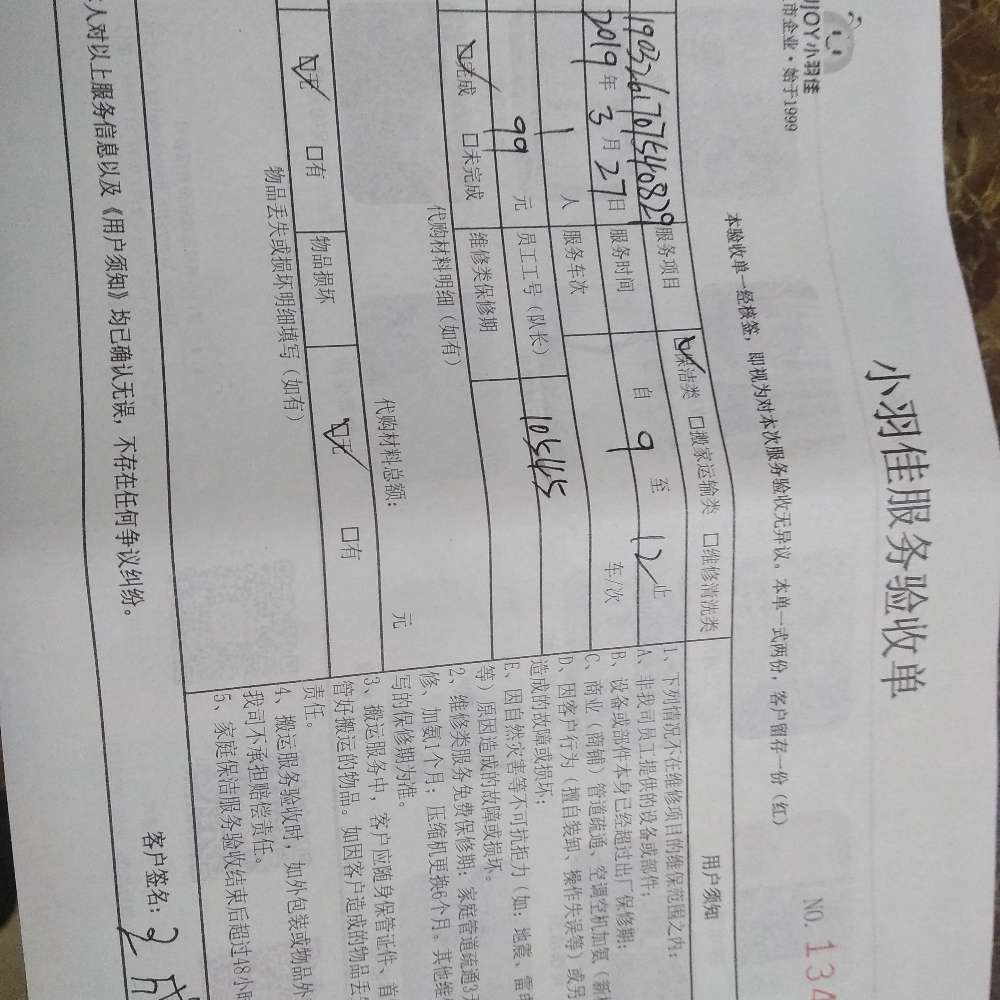 JOY小羽佳
市企业·始于1999
小羽佳服务验收单
NO.134
本验收单一经核签，即视为对本次服务验收无异议。本单一式两份，客户留存一份（红）
1903261707540829
服务项目
保洁类 □搬家运输类 □维修清洗类
用户须知
2019年3月27日
服务时间
自 9 至 12 止
1 人
服务车次
车/次
99 元
员工工号（队长）
10545
完成 □未完成
维修类保修期
代购材料明细（如有）
代购材料总额： 元
无 □有
物品损坏
无 □有
物品丢失或损坏明细填写（如有）
1、下列情况不在维修项目的维保范围之内：
A、非我司员工提供的设备或部件；
B、设备或部件本身已经超过出厂保修期；
C、商业（商铺）管道疏通、空调空机加氨（新机
D、因客户行为（擅自装卸、操作失误等）或另
造成的故障或损坏；
E、因自然灾害等不可抗拒力（如：地震、雷电
等）原因造成的故障或损坏。
2、维修类服务免费保修期：家庭管道疏通3天
修、加氨1个月；压缩机更换6个月。其他维
写的保修期为准。
3、搬运服务中，客户应随身保管证件、首
管好搬运的物品。如因客户造成的物品丢
责任。
4、搬运服务验收时，如外包装或物品外
我司不承担赔偿责任。
5、家庭保洁服务验收结束后超过48小时
人对以上服务信息以及《用户须知》均已确认无误，不存在任何争议纠纷。
客户签名：